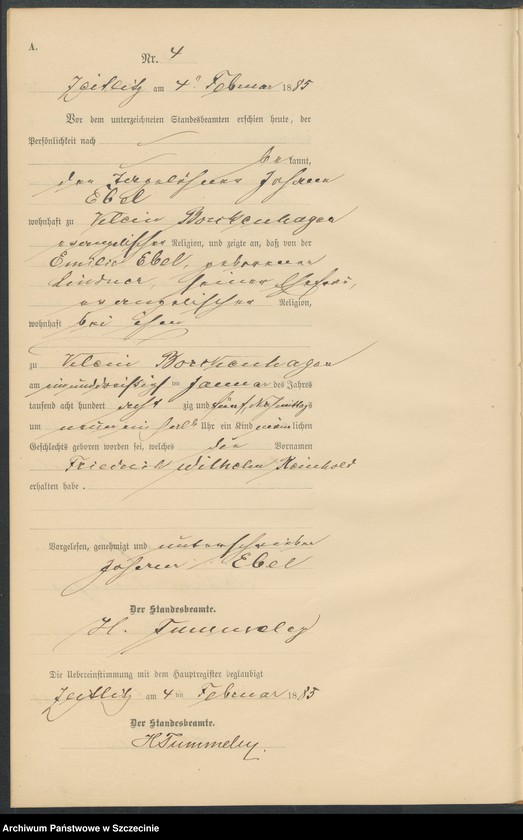 A.
Nr. 4
Zeitlitz am 4 Februar 1885
Vor dem unterzeichneten Standesbeamten erschien heute, der
Persönlichkeit nach
bekannt,
der Tagelöhner Johann
Ebel
wohnhaft zu Klein Borckenhagen
evangelischer Religion, und zeigte an, daß von der
Emilie Ebel, geborener
Lindner, seiner Ehefrau,
evangelischer Religion,
wohnhaft bei ihm
zu Klein Borckenhagen
am einunddreißigsten Januar des Jahres
tausend acht hundert achtzig und fünf, Nachmittags
um neun ein halb Uhr ein Kind männlichen
Geschlechts geboren worden sei, welches die Vornamen
Friedrich Wilhelm Reinhold
erhalten habe.
Vorgelesen, genehmigt und unterschrieben
Johann Ebel
Der Standesbeamte.
H. Tummeley
Die Uebereinstimmung mit dem Hauptregister beglaubigt
Zeitlitz am 4 ten Februar 1885
Der Standesbeamte.
H Tummeley.
Archiwum Państwowe w Szczecinie